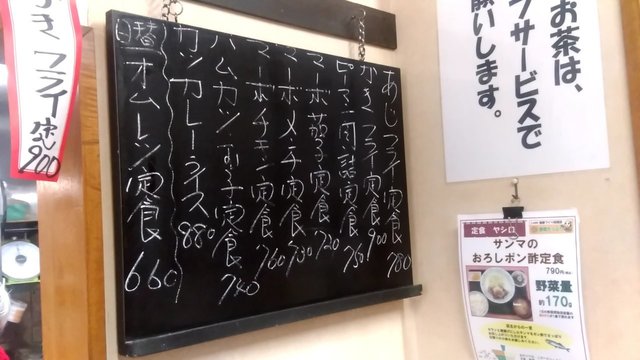 かき フライ定食
900
あじフライ定食 780
かきフライ定食 900
ピーマン肉詰定食 750
マーボ茄子定食 720
マーボメンチ定食 730
マーボチキン定食 760
ハムカツ・玉子定食 740
カツカレーライス 880
日替 オムレツ定食 660
お茶は、
フサービスで
願いします。
定食 ヤシロ
サンマの
おろしポン酢定食
790円
野菜量
約170g